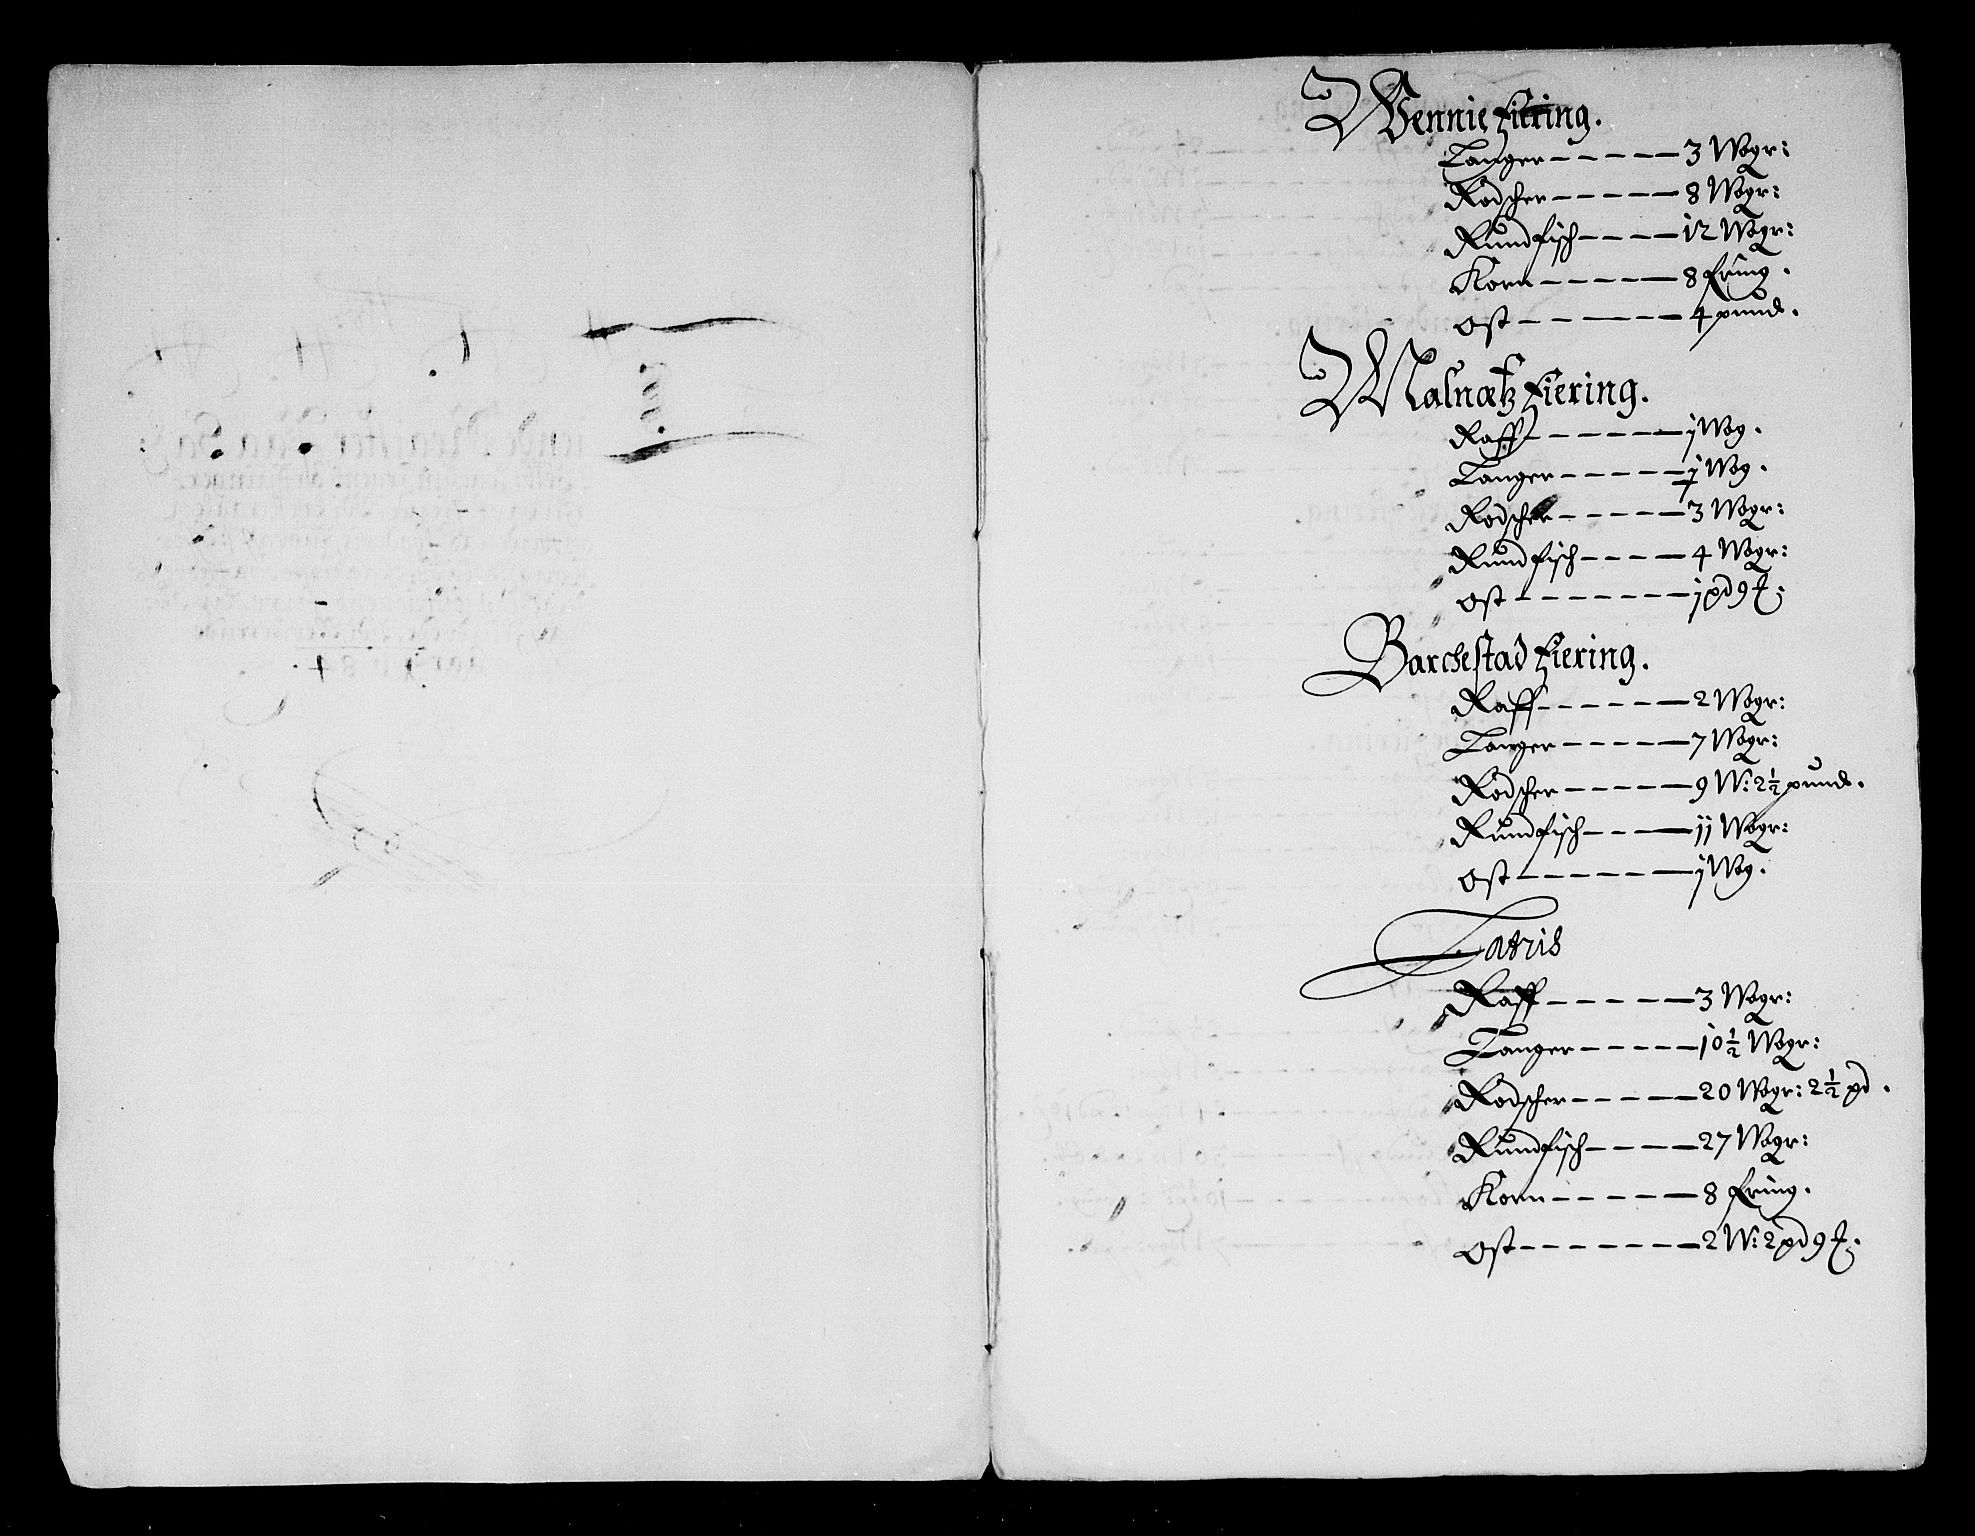 Wennie Fiering.
Langer — 3 Wogr:
Rodscher — 8 Wogr:
Rundfisch — 12 Wogr:
Korn — 8 Fring.
Ost — 4 pund.
Malnæs Fiering.
Raff — 1 Wog.
Langer — ½ Wog.
Rodscher — 3 Wogr:
Rundfisch — 4 Wogr:
Ost — 1 pd 9
Barchestad Fiering.
Raff — 2 Wogr:
Langer — 7 Wogr:
Rodscher — 9 W: 2½ pund.
Rundfisch — 11 Wogr:
Ost — 1 Wog.
Lateris
Raff — 3 Wogr:
Langer — 10½ Wogr:
Rodscher — 20 Wogr: 2½ pd.
Rundfisch — 27 Wogr:
Korn — 8 Fring.
Ost — 2 W: 2 pd 9